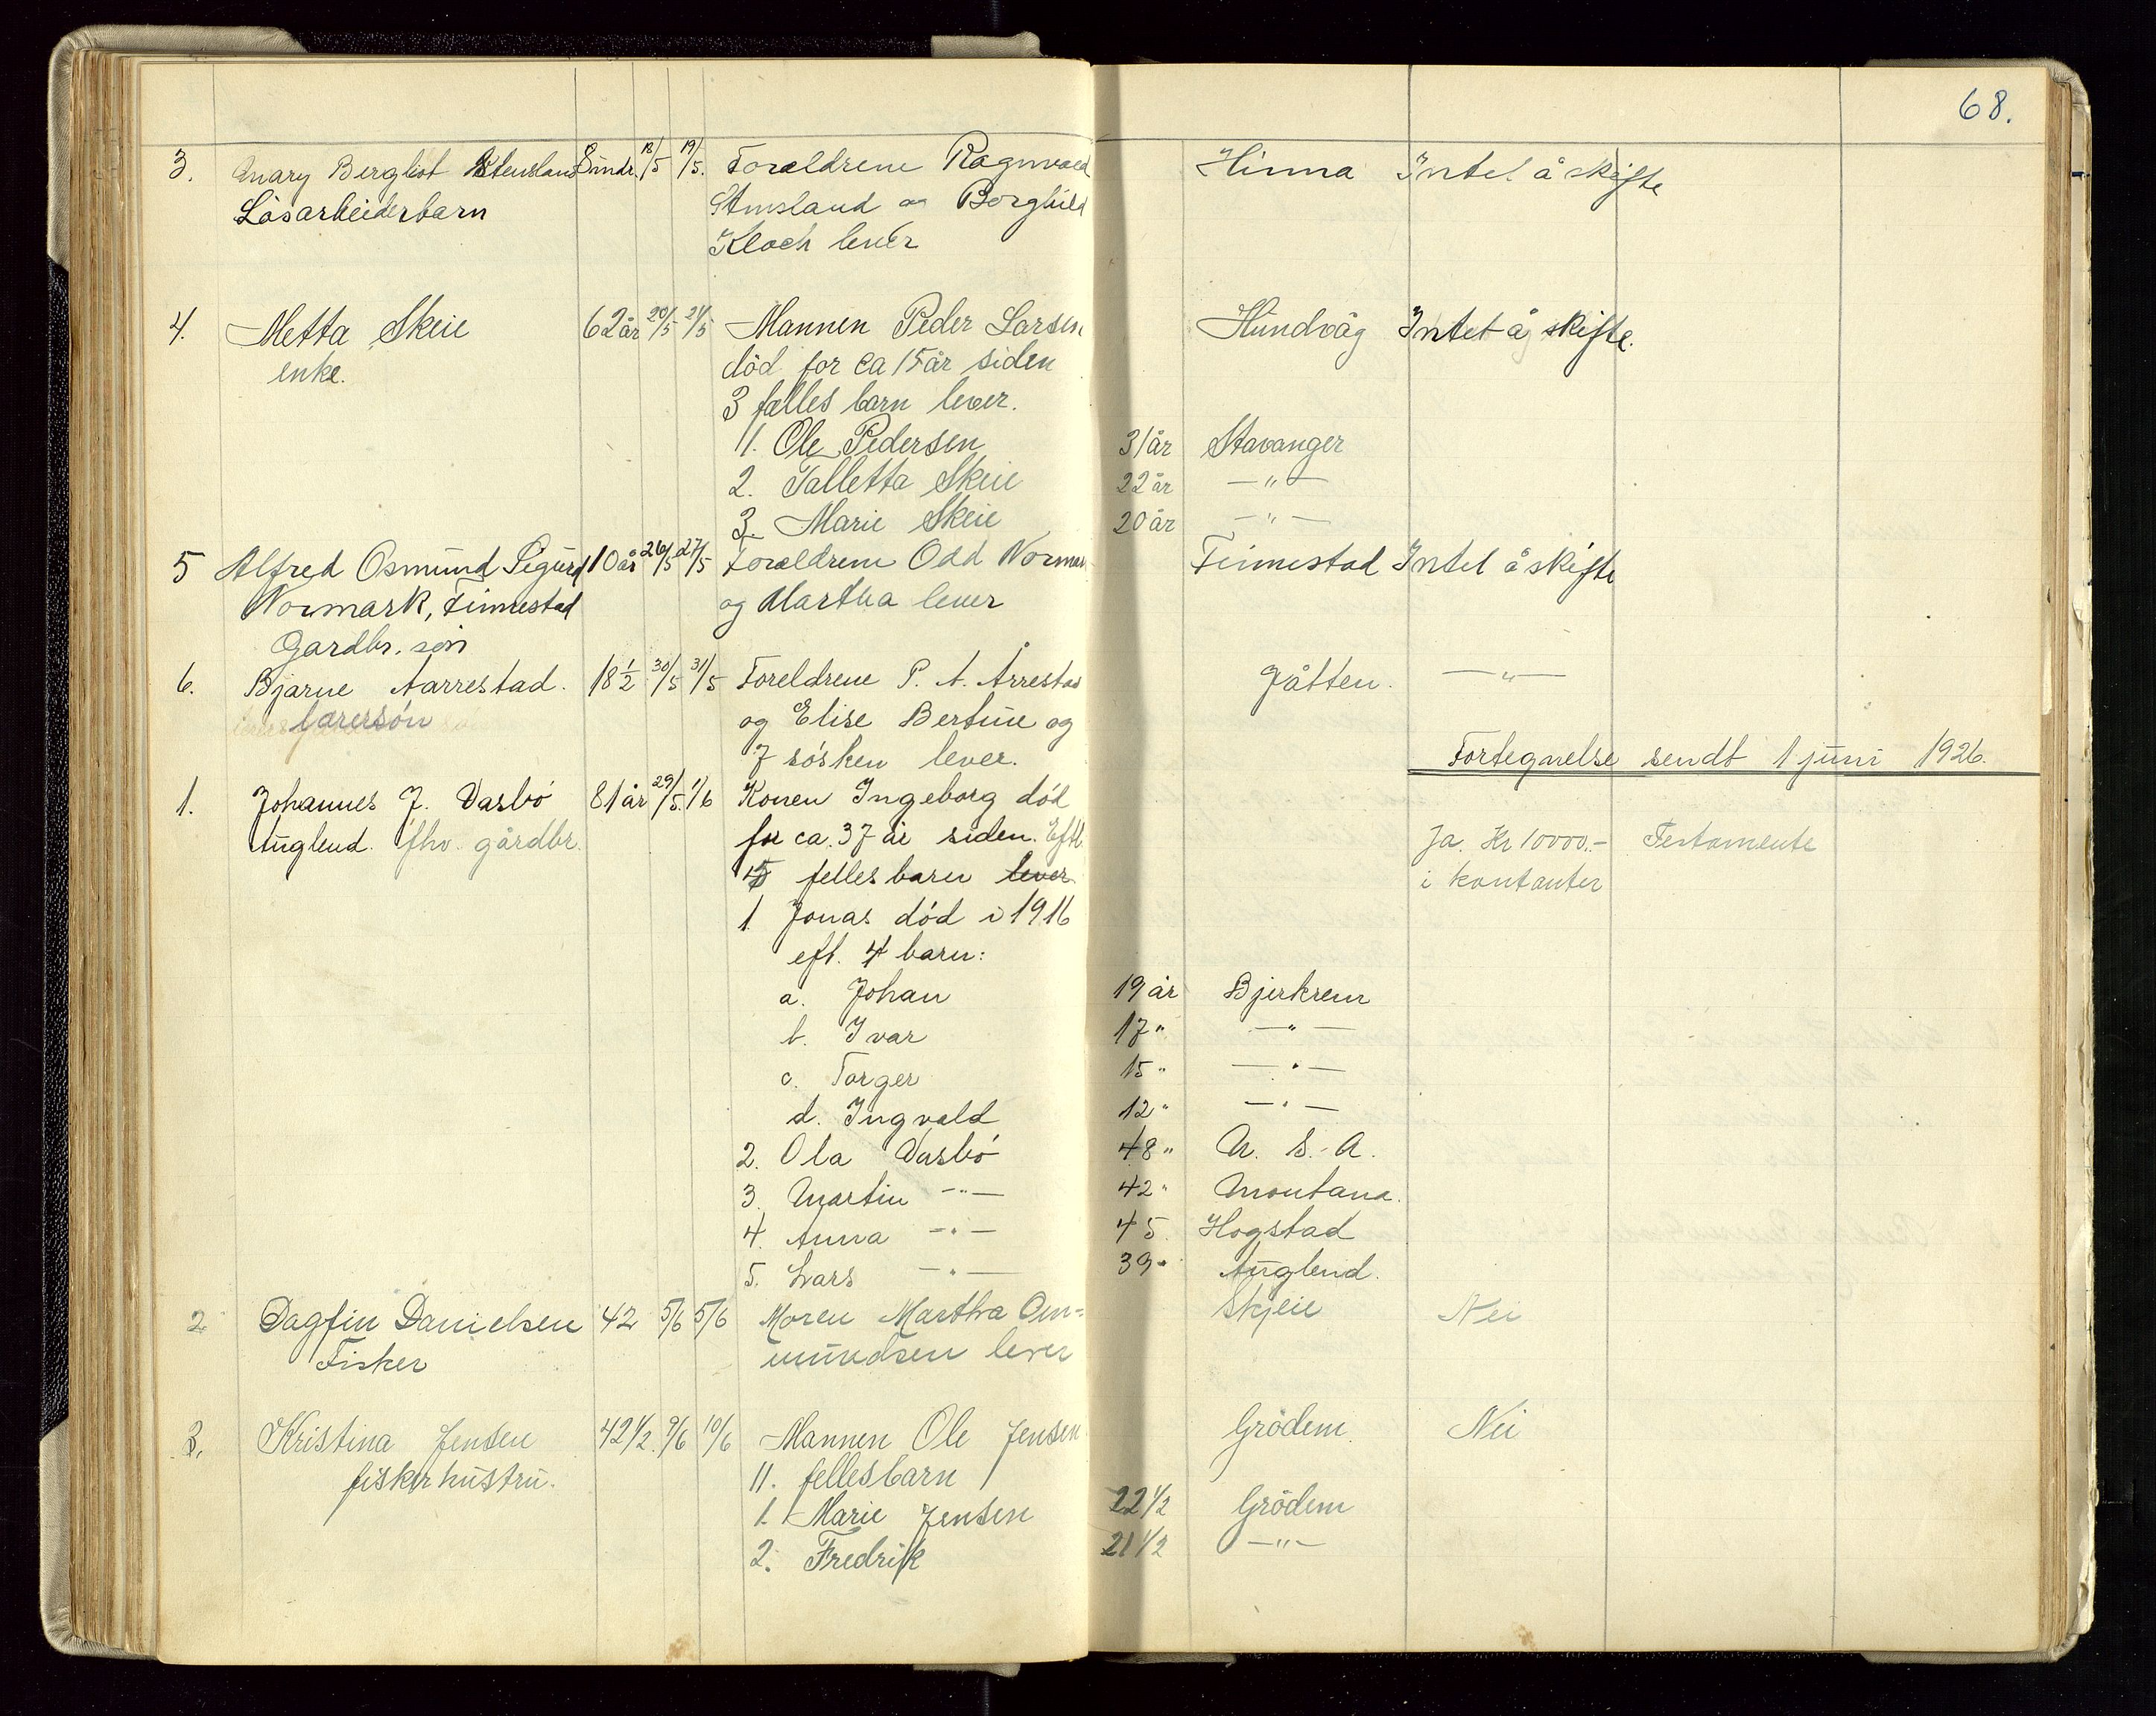 68.
3. Mary Bergliot Stensland 8 mdr. 18/5 19/5. Forældrene Ragnvald Hinna Intet å skifte
Lösarbeiderbarn Stensland og Borghild
Kloch lever
4. Metta Skeie 62 år 20/5 21/5 Mannen Peder Larsen Hundvåg Intet å skifte.
enke. död for ca 15 år siden
3 fælles barn lever.
1. Ole Pedersen 31 år Stavanger
2. Talletta Skeie 22 år —"—
3. Marie Skeie 20 år —"—
5 Alfred Osmund Sigurd 10 år 26/5 27/5 Forældrene Odd Normar Finnestad Intet å skifte
Normark, Finnestad og Martha lever
Gardbr. sön
6. Bjarne Aarrestad. 18 1/2 30/5 31/5 Foreldrene P. A. Årrestad Jåtten. —"—
lærersön og Elise Bertine og
7 sösken lever. Fortegnelse sendt 1 juni 1926.
1. Johannes J. Dasbö 81 år 29/5. 1/6 Konen Ingeborg död
Auglend. fhv. gårdbr. for ca. 37 år siden. Eftl. Ja. Kr 10000.- Testamente
5 felles barn lever i kontanter
1 Jonas död i 1916
eft. 4 barn:
a. Johan 19 år Bjerkrem
b. Ivar 17 " —"—
c. Torger 15 " —"—
d. Ingvald 12 " —"—
2. Ola Dasbö 48 " U. S. A.
3. Martin —"— 42 " Montana.
4. Anna —"— 45. Hogstad
5. Lars —"— 39 " Auglend.
2 Dagfin Danielsen 42 5/6 5/6 Moren Martha Om= Skjeie Nei
Fisker mundsen lever
3. Kristina Jensen 42 1/2. 9/6 10/6 Mannen Ole Jensen Grödem. Nei
fiskerhustru. 11. fellesbarn
1. Marie Jensen 22 1/2 Grödem
2. Fredrik 21 1/2 —"—